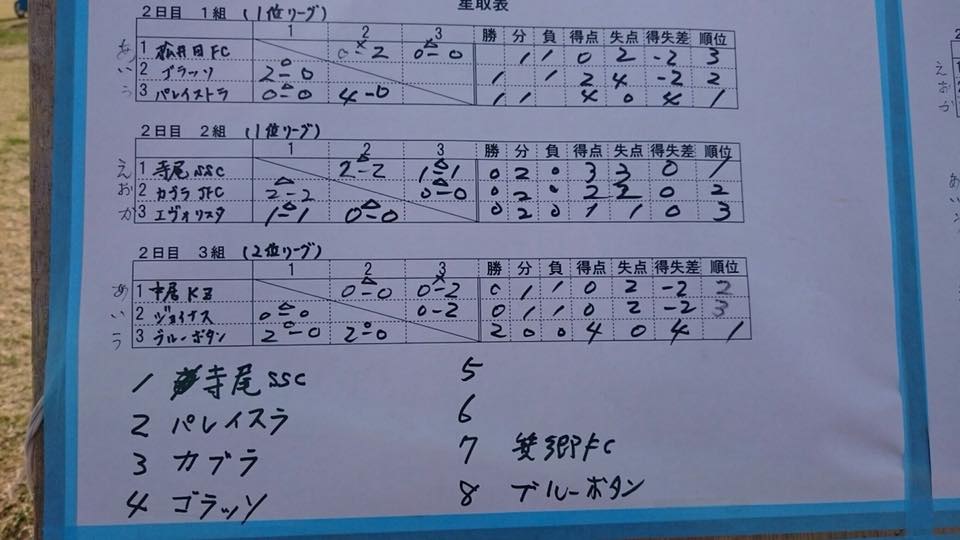 星取表
2日目 1組 (1位リーグ)
1 2 3 勝 分 負 得点 失点 得失差 順位
あ 1 松井田FC 0-2 0-0 1 1 0 2 -2 3
い 2 ゴラッソ 2-0 1 1 2 4 -2 2
う 3 パレイストラ 0-0 4-0 1 1 4 0 4 1
2日目 2組 (1位リーグ)
1 2 3 勝 分 負 得点 失点 得失差 順位
え 1 寺尾SSC 2-2 1-1 0 2 0 3 3 0 1
お 2 カブラJFC 2-2 0-0 0 2 0 2 2 0 2
か 3 エヴォリスタ 1-1 0-0 0 2 0 1 1 0 3
2日目 3組 (2位リーグ)
1 2 3 勝 分 負 得点 失点 得失差 順位
あ 1 中居KZ 0-0 0-2 0 1 1 0 2 -2 2
い 2 ジョイナス 0-0 0-2 0 1 1 0 2 -2 3
う 3 ブルーボタン 2-0 2-0 2 0 0 4 0 4 1
1 寺尾SSC
2 パレイスラ
3 カブラ
4 ゴラッソ
5
6
7 箕郷FC
8 ブルーボタン
え
お
か
あ
い
う